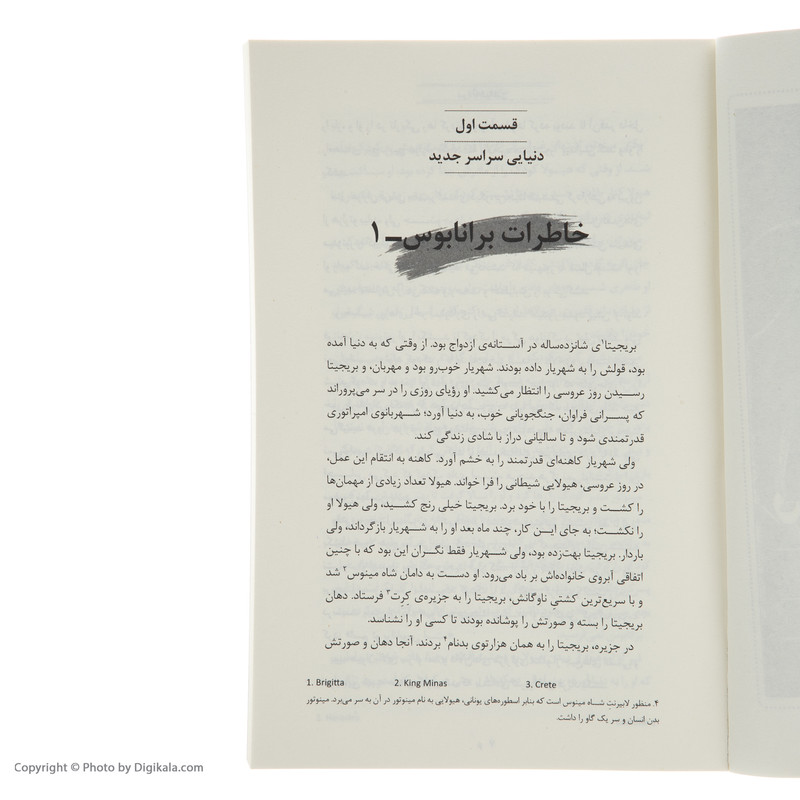 قسمت اول
دنیایی سراسر جدید
خاطرات برانابوس ـ ۱
بریجیتا¹ی شانزده‌ساله در آستانه‌ی ازدواج بود. از وقتی که به دنیا آمده
بود، قولش را به شهریار داده بودند. شهریار خوب‌رو بود و مهربان، و بریجیتا
رسیدن روز عروسی را انتظار می‌کشید. او رؤیای روزی را در سر می‌پروراند
که پسرانی فراوان، جنگجویانی خوب، به دنیا آورد؛ شهربانوی امپراتوری
قدرتمندی شود و تا سالیانی دراز با شادی زندگی کند.
ولی شهریار کاهنه‌ای قدرتمند را به خشم آورد. کاهنه به انتقام این عمل،
در روز عروسی، هیولایی شیطانی را فرا خواند. هیولا تعداد زیادی از مهمان‌ها
را کشت و بریجیتا را با خود برد. بریجیتا خیلی رنج کشید، ولی هیولا او
را نکشت؛ به جای این کار، چند ماه بعد او را به شهریار بازگرداند، ولی
باردار. بریجیتا بهت‌زده بود، ولی شهریار فقط نگران این بود که با چنین
اتفاقی آبروی خانواده‌اش بر باد می‌رود. او دست به دامان شاه مینوس² شد
و با سریع‌ترین کشتیِ ناوگانش، بریجیتا را به جزیره‌ی کِرِت³ فرستاد. دهان
بریجیتا را بسته و صورتش را پوشانده بودند تا کسی او را نشناسد.
در جزیره، بریجیتا را به همان هزارتوی بدنام⁴ بردند. آنجا دهان و صورتش
1. Brigitta 2. King Minas 3. Crete
۴. منظور لابیرنت شاه مینوس است که بنابر اسطوره‌های یونانی، هیولایی به نام مینوتور در آن به سر می‌برد. مینوتور
بدن انسان و سر یک گاو را داشت.
Copyright © Photo by Digikala.com